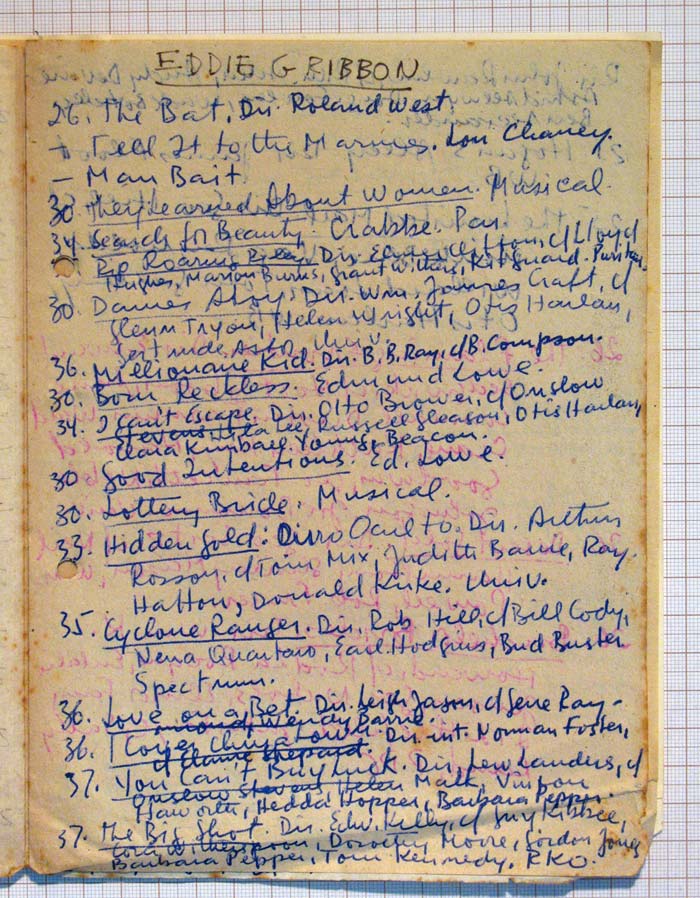 EDDIE GRIBBON
26. The Bat. Dir. Roland West.
- Tell It to the Marines. Lon Chaney.
- Man Bait
30 They Learned About Women. Musical.
34. Search for Beauty. Crabbe. Par.
Rip Roaring Riley. Dir. Elmer Clifton, c/ Lloyd
Hughes, Marion Burns, Grant Withers, Kit Guard. Puritan.
30. Dames Ahoy. Dir. Wm. James Craft, c/
Glenn Tryon, Helen Wright, Otis Harlan,
Gertrude Astor. Univ.
36. Millionaire Kid. Dir. B.B. Ray, c/ B. Compson.
30. Born Reckless. Edmund Lowe.
34. I Can't Escape. Dir. Otto Brower, c/ Onslow
Stevens, Lila Lee, Russell Gleason, Otis Harlan,
Clara Kimball Young, Beacon.
30 Good Intentions. Ed. Lowe.
30. Lottery Bride. Musical.
33. Hidden Gold: Dir. Arthur
Rosson, c/ Tom Mix, Judith Barrie, Ray.
Hatton, Donald Kirke. Univ.
35. Cyclone Ranger. Dir. Rob. Hill, c/ Bill Cody,
Nena Quartaro, Earl Hodgins, Bud Buster
Spectrum.
36. Love on a Bet. Dir. Leigh Jason, c/ Gene Ray-
mond, Wendy Barrie.
36. I Cover Chinatown. Dir. int. Norman Foster,
c/ Elaine Shepard.
37. You Can't Buy Luck. Dir. Lew Landers, c/
Onslow Stevens, Helen Mack, Vinton
Haworth, Hedda Hopper, Barbara Pepper.
37. The Big Shot. Dir. Edw. Killy, c/ Guy Kibbee,
Cora Witherspoon, Dorothy Moore, Gordon Jones
Barbara Pepper, Tom Kennedy. RKO.